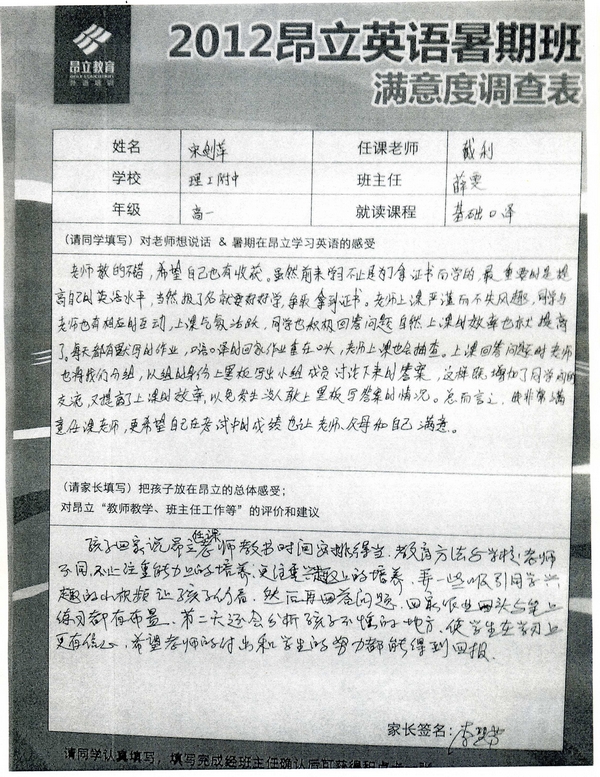 昂立教育
2012昂立英语暑期班
满意度调查表
姓名 任课老师 戴利
学校 理工附中 班主任 薛雯
年级 高一 就读课程 基础口译
(请同学填写) 对老师想说话 & 暑期在昂立学习英语的感受
老师教的不错,希望自己也有收获。虽然前来学习不止是为了拿证书而学的,最重要的是提
高自己的英语水平,当然报了名就要好好学,争取拿到证书。老师上课严谨而不失风趣,同学与
老师也有相应的互动,上课气氛活跃,同学也积极回答问题,自然上课的效率也水 提高
了。每天都有默写的作业,口语口译的回家作业重在口头,老师上课也会抽查。上课回答问题时老师
也将我们分组,以组的身份上黑板写出小组成员讨论下来的答案,这样既增加了同学间的
交流,又提高了上课的效率,以免发生没人敢上黑板写答案的情况。总而言之,我非常满
意任课老师,更希望自己在考试中的成绩也让老师、父母和自己满意。
(请家长填写) 把孩子放在昂立的总体感受;
对昂立“教师教学、班主任工作等”的评价和建议
孩子回家说昂立任课老师教书时间安排得当,教育方法与学校老师
不同,不止注重能力上的培养,更注重兴趣上的培养,弄一些吸引同学兴
趣的小视频让孩子们看,然后再回答问题,回家作业口头与笔上
练习都有布置,第二天还会分析孩子不懂的地方,使学生在学习上
更有信心,希望老师的付出和学生的努力都能得到回报。
家长签名:
请同学认真填写,填写完成经班主任确认后可获得积点